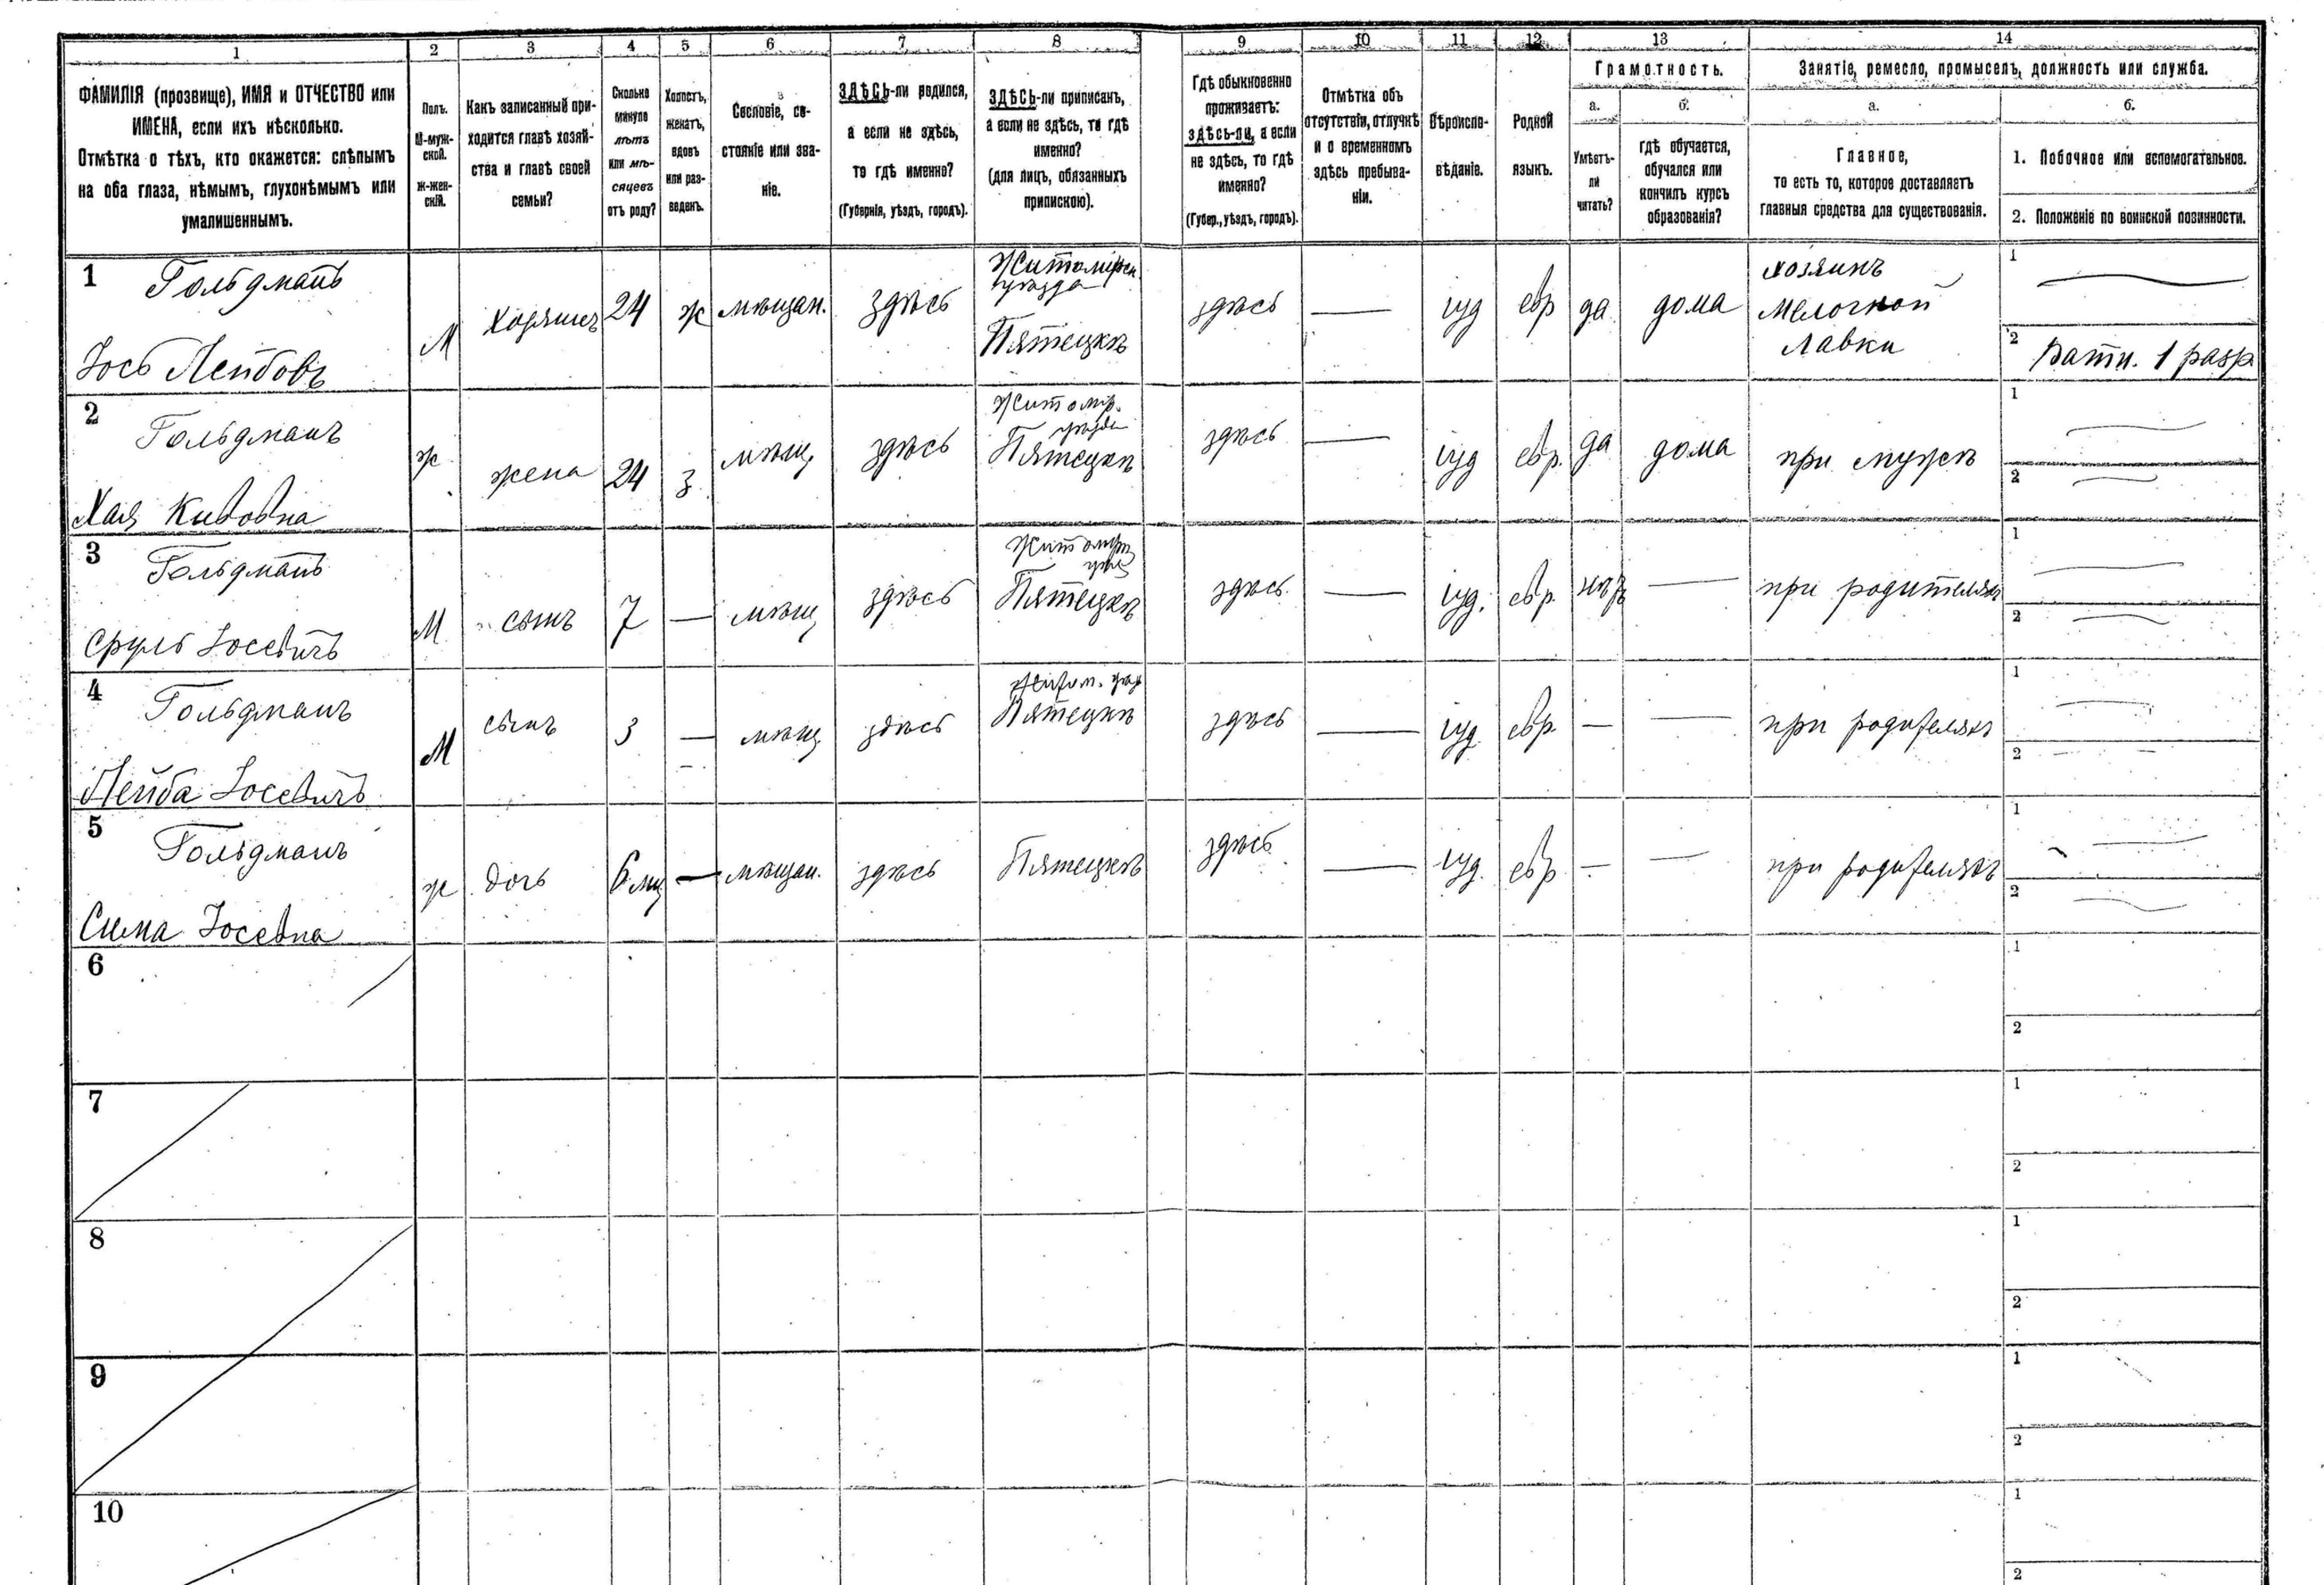 1 2 3 4 5 6 7 8 9 10 11 12 13 14
ФАМИЛІЯ (прозвище), ИМЯ и ОТЧЕСТВО или
ИМЕНА, если ихъ нѣсколько.
Отмѣтка о тѣхъ, кто окажется: слѣпымъ
на оба глаза, нѣмымъ, глухонѣмымъ или
умалишеннымъ.
Полъ.
М-муж-
ской.
Ж-жен-
скій.
Какъ записанный при-
ходится главѣ хозяй-
ства и главѣ своей
семьи?
Сколько
минуло
лѣтъ
или мѣ-
сяцевъ
отъ роду?
Холостъ,
женатъ,
вдовъ
или раз-
веденъ.
Сословіе, со-
стояніе или зва-
ніе.
ЗДѢСЬ-ли родился,
а если не здѣсь,
то гдѣ именно?
(Губернія, уѣздъ, городъ).
ЗДѢСЬ-ли приписанъ,
а если не здѣсь, то гдѣ
именно?
(для лицъ, обязанныхъ
припискою).
Гдѣ обыкновенно
проживаетъ:
здѣсь-ли, а если
не здѣсь, то гдѣ
именно?
(Губер., уѣздъ, городъ).
Отмѣтка объ
отсутствіи, отлучкѣ
и о временномъ
здѣсь пребыва-
ніи.
Вѣроиспо-
вѣданіе.
Родной
языкъ.
Грамотность.
а.
Умѣетъ-
ли
читать?
б.
гдѣ обучается,
обучался или
кончилъ курсъ
образованія?
Занятіе, ремесло, промыселъ, должность или служба.
а.
Главное,
то есть то, которое доставляетъ
главныя средства для существованія.
б.
1. Побочное или вспомогательное.
2. Положеніе по воинской повинности.
1
Гольдманъ
Іось Лейбовъ
М
Хозяинъ
24
ж
мѣщан.
здѣсь
Житомірск.
уѣзда
Пятецкъ
здѣсь
—
іуд
евр
да
дома
хозяинъ
мелочной
лавки
1 —
2 Ратн. 1 разр
2
Гольдманъ
Хая Кивовна
ж
жена
24
з
мѣщ.
здѣсь
Житомір.
уѣзда
Пятецкъ
здѣсь
—
іуд
евр.
да
дома
при мужѣ
1 —
2 —
3
Гольдманъ
Сруль Іосевичъ
М
сынъ
7
—
мѣщ
здѣсь
Житомір
Пятецкъ
здѣсь
—
іуд.
евр.
нѣтъ
—
при родителяхъ
1 —
2 —
4
Гольдманъ
Лейба Іосевичъ
М
сынъ
3
—
мѣщ
здѣсь
Житом. уѣз
Пятецкъ
здѣсь
—
іуд.
евр.
—
—
при родителяхъ
1 —
2 —
5
Гольдманъ
Сима Іосевна
ж
дочь
6 мц
—
мѣщан.
здѣсь
Пятецкъ
здѣсь
—
іуд.
евр
—
—
при родителяхъ
1 —
2 —
6
1
2
7
1
2
8
1
2
9
1
2
10
1
2